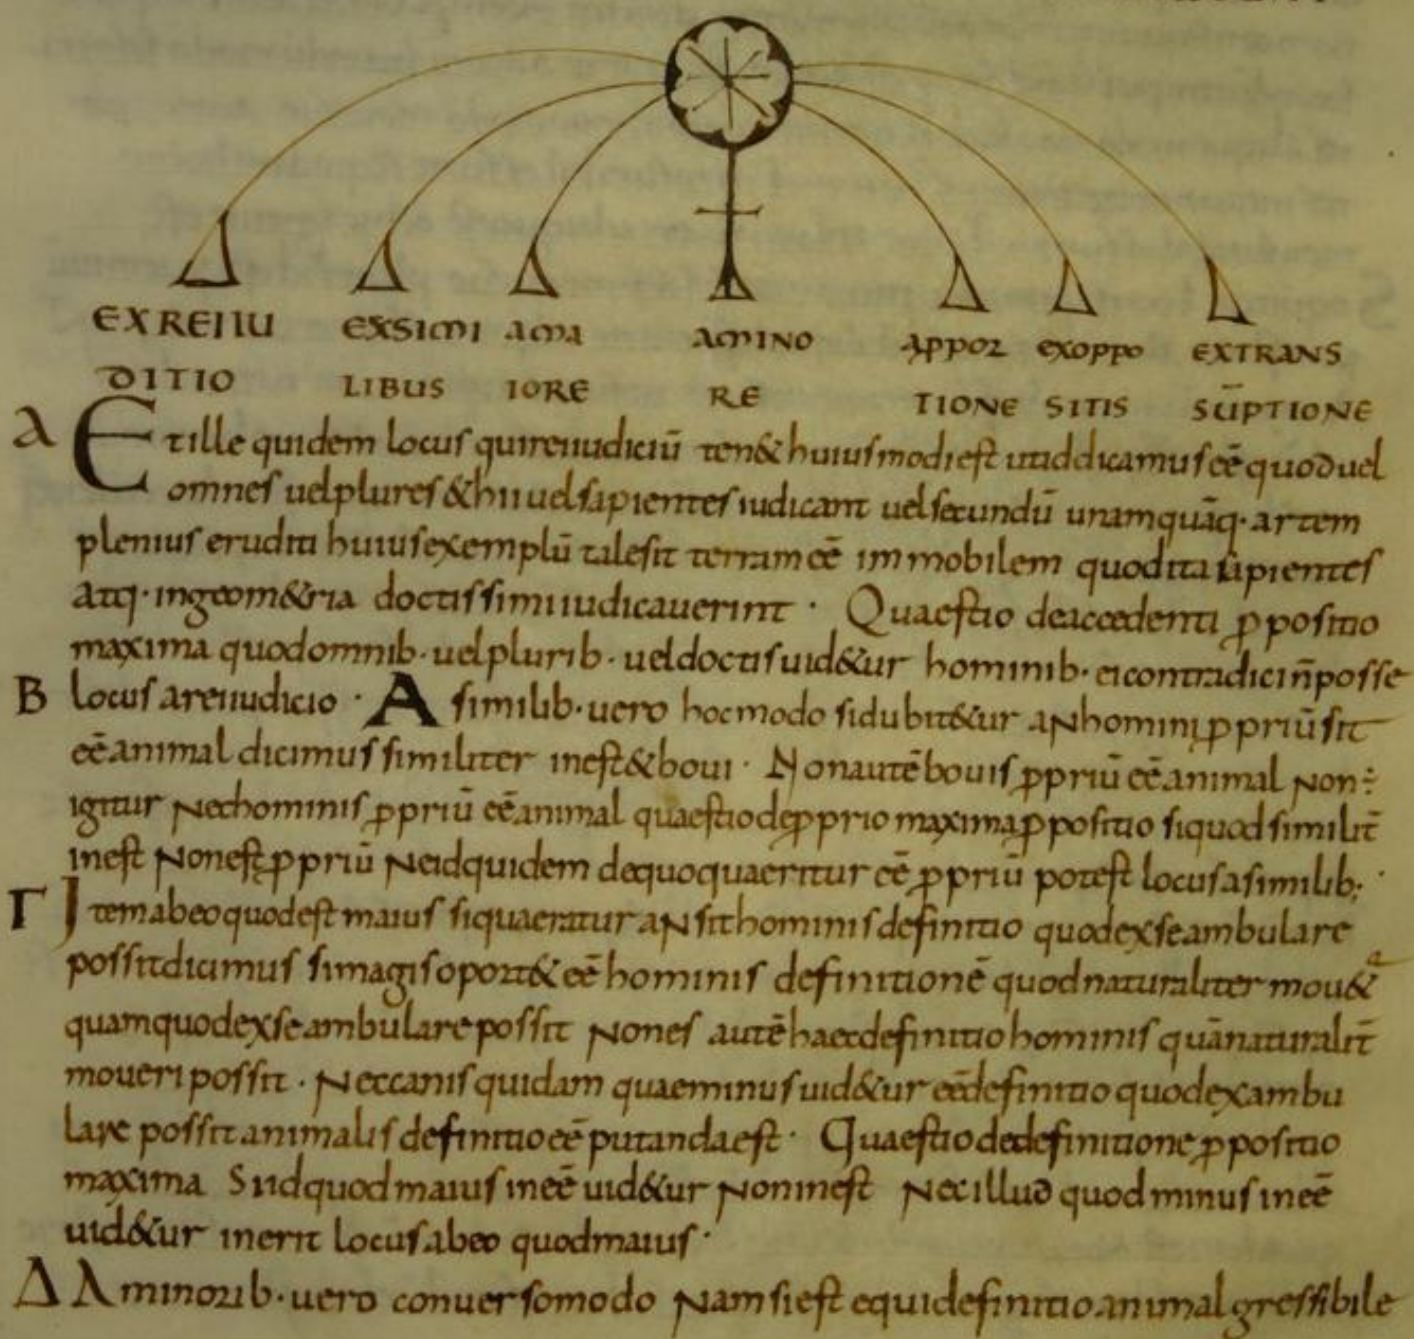 EX REI IU EXSIMI AMA AMINO APPOR EXOPPO EXTRANS
DITIO LIBUS IORE RE TIONE SITIS SŪPTIONE
A Et ille quidem locus qui rei iudiciū ten& huiusmodi est ut id dicamus eē quod uel
omnes uel plures & hii uel sapientes iudicant uel secundū unam quāq· artem
plenius eruditi huius exemplū tale sit terram eē immobilem quod ita sapientes
atq· in geom&ria doctissimi iudicauerint · Quaestio de accedenti ꝓpositio
maxima quod omnib· uel plurib· uel doctis uid&ur hominib· ei contradici n̄ posse
B locus a rei iudicio · A similib· uero hoc modo si dubit&ur an homini ꝓpriū sit
eē animal dicimus similiter inest & boui · Non autē bouis ꝓpriū eē animal non ÷
igitur nec hominis ꝓpriū eē animal quaestio de ꝓprio maxima ꝓpositio si quod similit̄
inest non est ꝓpriū ne id quidem de quo quaeritur eē ꝓpriū potest locus a similib; ·
Γ Item ab eo quod est maius si quaeratur an sit hominis definitio quod ex se ambulare
possit dicimus si magis oport& eē hominis definitionē quod naturaliter mou&a
quam quod ex se ambulare possit non es autē haec definitio hominis quā naturalit̄
moueri possit · Nec canis quidam quae minus uid&ur eē definitio quod ex ambu
lare possit animalis definitio eē putanda est · Quaestio de definitione ꝓpositio
maxima Si id quod maius ineē uid&ur non inest Nec illud quod minus ineē
uid&ur inerit locus ab eo quod maius ·
Δ A minorib· uero conuerso modo Nam si est equi definitio animal gressibile